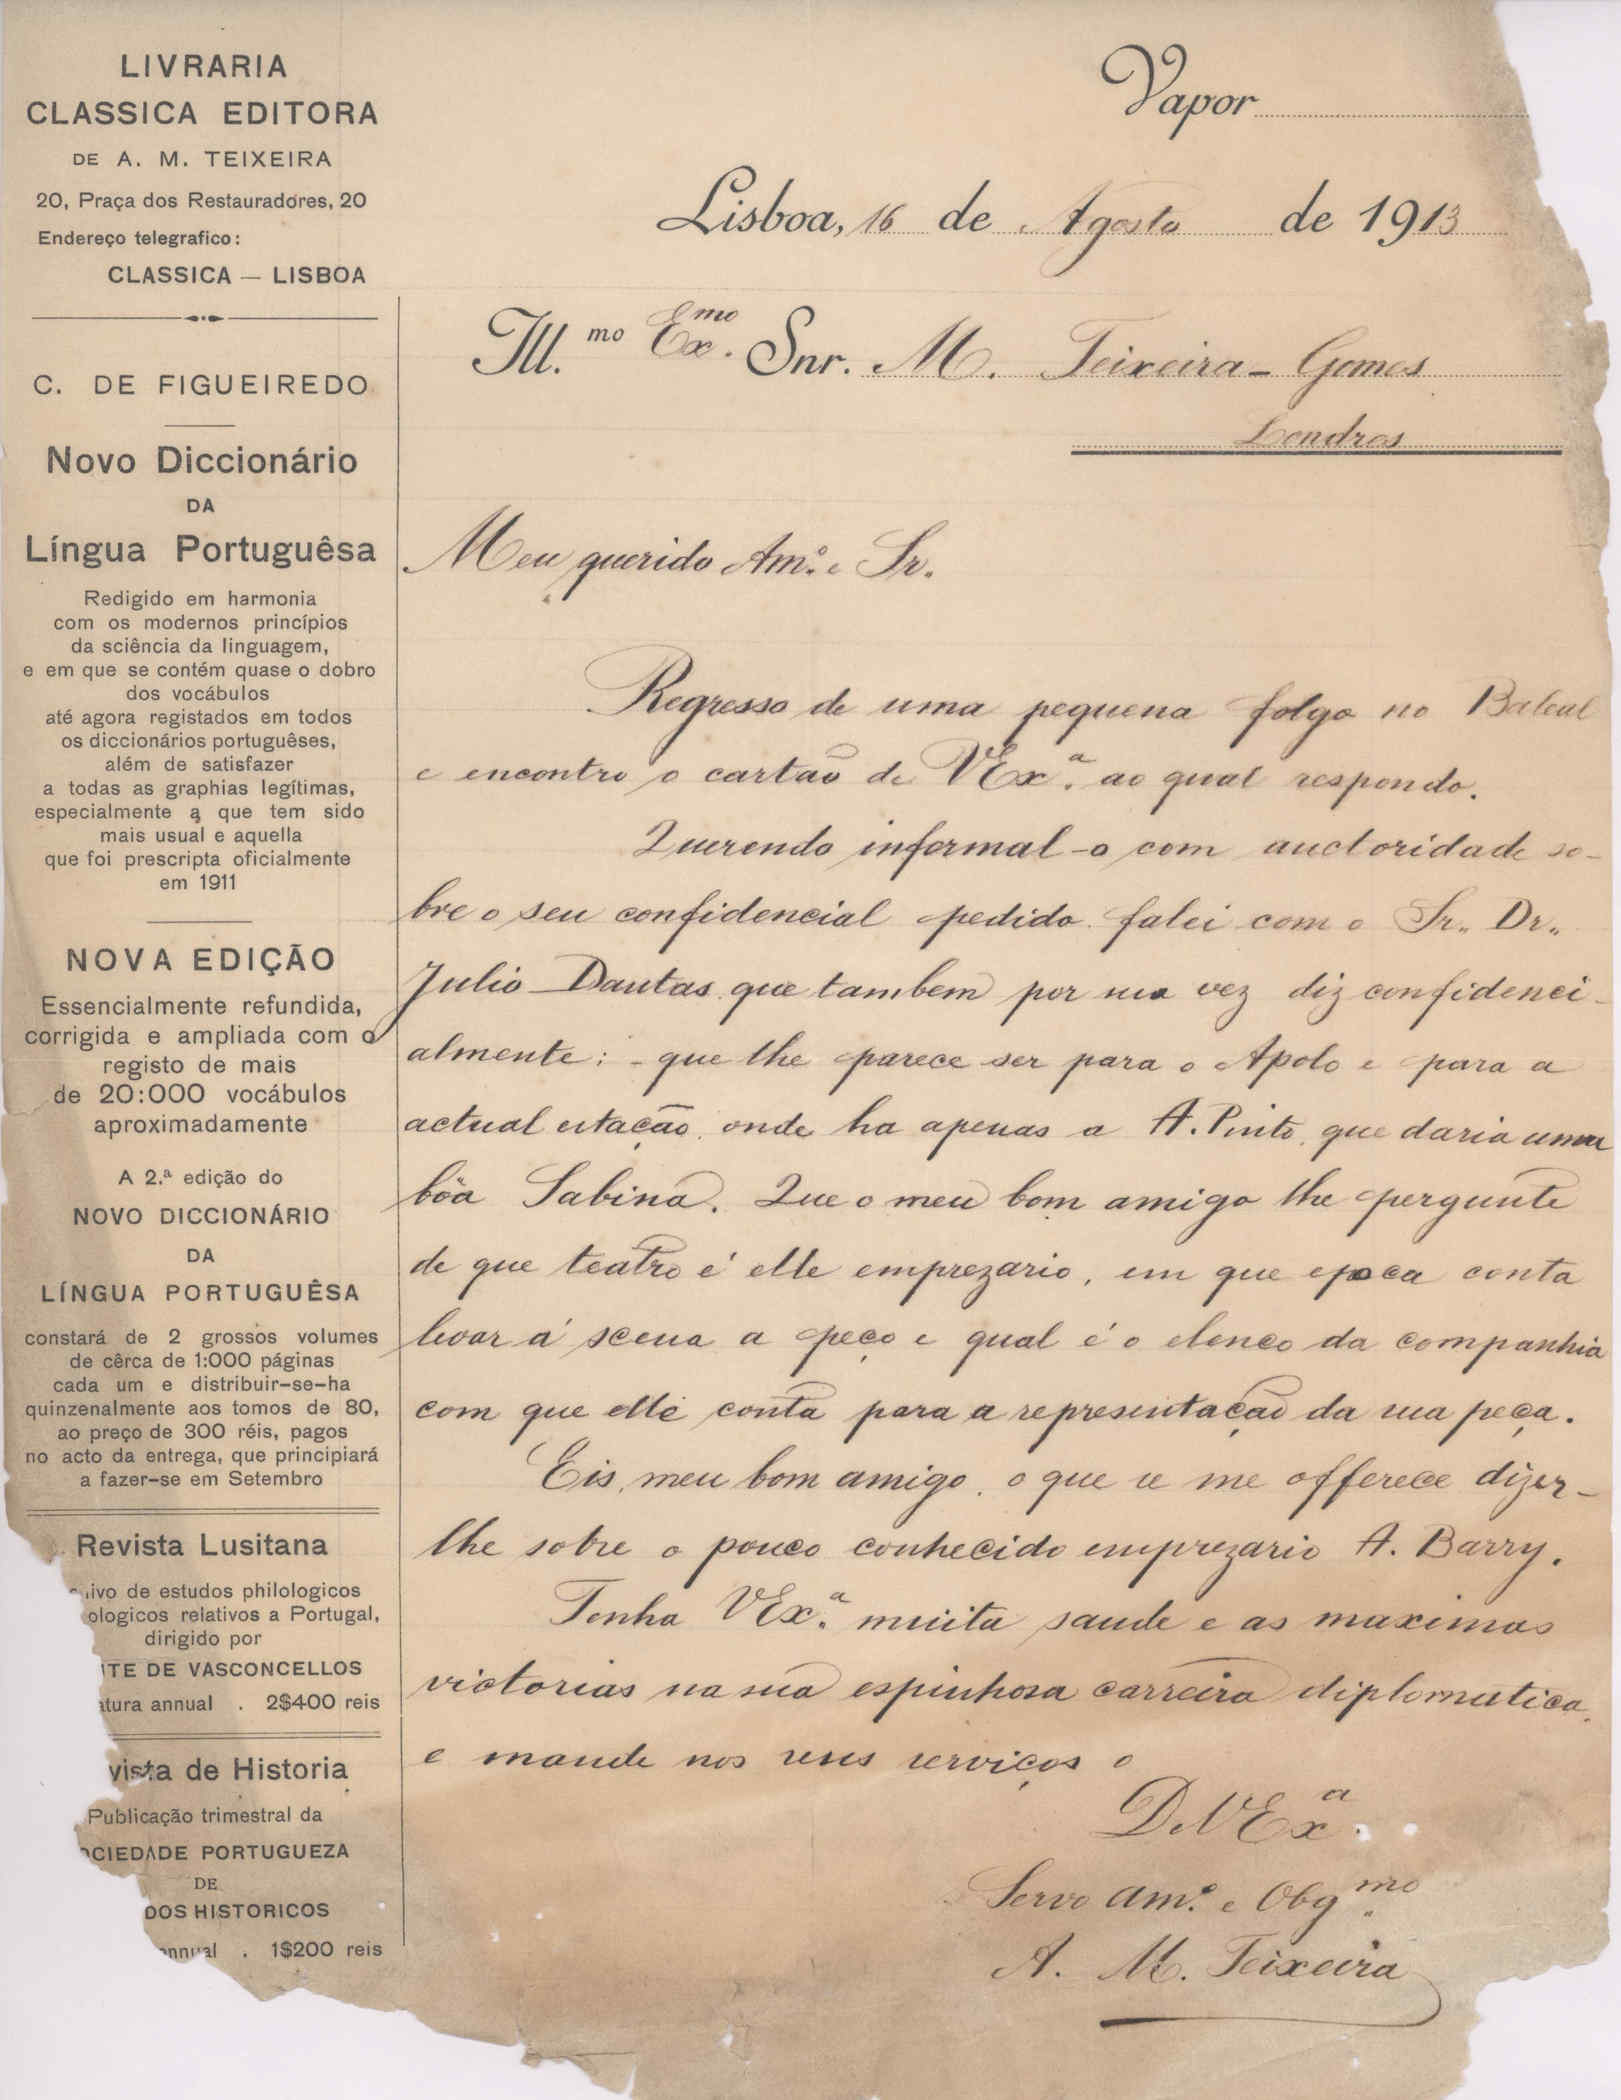 LIVRARIA
CLASSICA EDITORA
DE A. M. TEIXEIRA
20, Praça dos Restauradores, 20
Endereço telegrafico:
CLASSICA — LISBOA
C. DE FIGUEIREDO
Novo Diccionário
DA
Língua Portuguêsa
Redigido em harmonia
com os modernos princípios
da sciência da linguagem,
e em que se contém quase o dobro
dos vocábulos
até agora registados em todos
os diccionários portuguêses,
além de satisfazer
a todas as graphias legítimas,
especialmente a que tem sido
mais usual e aquella
que foi prescripta oficialmente
em 1911
NOVA EDIÇÃO
Essencialmente refundida,
corrigida e ampliada com o
registo de mais
de 20:000 vocábulos
aproximadamente
A 2.ª edição do
NOVO DICCIONÁRIO
DA
LÍNGUA PORTUGUÊSA
constará de 2 grossos volumes
de cêrca de 1:000 páginas
cada um e distribuir-se-ha
quinzenalmente aos tomos de 80,
ao preço de 300 réis, pagos
no acto da entrega, que principiará
a fazer-se em Setembro
Revista Lusitana
ivo de estudos philologicos
ologicos relativos a Portugal,
dirigido por
ITE DE VASCONCELLOS
atura annual . 2$400 reis
vista de Historia
Publicação trimestral da
OCIEDADE PORTUGUEZA
DE
DOS HISTORICOS
annual . 1$200 reis
Vapor
Lisboa, 16 de Agosto de 1913
Ill.mo Exmo. Snr. M. Teixeira-Gomes
Londres
Meu querido Am.º e Sr.
Regresso de uma pequena folga no Baleal
e encontro o cartão de VEx.ª ao qual respondo.
Querendo informal-o com auctoridade so-
bre o seu confidencial pedido falei com o Sr. Dr.
Julio Dantas que tambem por sua vez diz confidenci-
almente: - que lhe parece ser para o Apolo e para a
actual estação, onde ha apenas a A. Pinto, que daria uma
bôa Sabina. Que o meu bom amigo lhe pergunte
de que teatro é elle emprezario, em que epoca conta
levar á scena a peça e qual é o elenco da companhia
com que elle conta para a representação da sua peça.
Eis, meu bom amigo, o que se me offerece dizer-
lhe sobre o pouco conhecido emprezario A. Barry.
Tenha VEx.ª muita saude e as maximas
victorias na sua espinhosa carreira diplomatica,
e mande nos seus serviços o
De VEx.ª
Servo am.º e Obg.mo
A. M. Teixeira